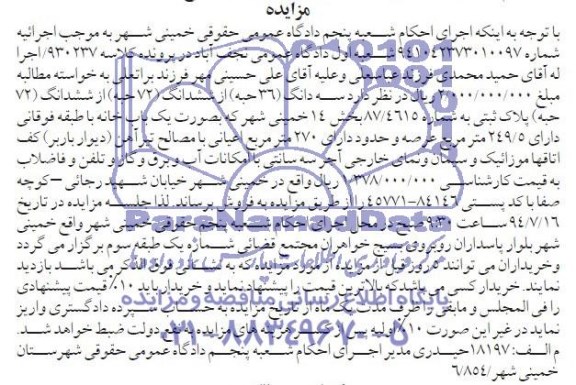 مزایده
با توجه به اینکه اجرای احکام شعبه پنجم دادگاه عمومی حقوقی خمینی شهر به موجب اجرائیه
شماره ۹۴۱۰۴۲۳۷۳۰۱۰۰۹۷ شعبه اول دادگاه عمومی نجف آباد در پرونده کلاسه ۹۳۰۲۳۷/اجرا
له آقای حمید محمدی فرزند عباسعلی وعلیه آقای علی حسینی مهر فرزند براتعلی به خواسته مطالبه
مبلغ ۲/۰۰۰/۰۰۰/۰۰۰ریال در نظر دارد سه دانگ (۳۶حبه) از ششدانگ (۷۲حبه) از ششدانگ (۷۲
حبه) پلاک ثبتی به شماره ۸۷/۴۶۱۵بخش ۱۴ خمینی شهر که بصورت یک باب خانه با طبقه فوقانی
دارای ۲۴۹/۵متر مربع عرصه و حدود دارای ۲۷۰ متر مربع اعیانی با مصالح تیرآهن (دیوار باربر) کف
اتاقها موزائیک و سیمان ونمای خارجی آجر سه سانتی با امکانات آب و برق وگاز و تلفن و فاضلاب
به قیمت کارشناسی ریال واقع در خمینی شهر خیابان شهید رجائی –کوچه
صفا با کد پستی ۸۴۱۴۶-۴۵۷۷۱را از طریق مزایده به فروش برساند. لذا جلسه مزایده در تاریخ
۹۴/۷/۱۶ ساعت ۹:۳۰ صبح در محل اجرای احکام شعبه پنجم حقوقی خمینی شهر واقع خمینی
شهر بلوار پاسداران روبروی بسیج خواهران مجتمع قضائی شماره یک طبقه سوم برگزار می گردد
وخریداران می توانند ۵روز قبل از مزایده از مورد مزایده که به نشانی فوق الذکر می باشد بازدید
نمایند. خریدار کسی می باشد که بالاترین قیمت را پیشنهاد نماید و خریدار باید ۱۰٪ قیمت پیشنهادی
را فی المجلس و مابقی را ظرف مدت یک ماه از تاریخ مزایده به حساب سپرده دادگستری واریز
نماید در غیر این صورت ۱۰٪ اولیه پس از کسر هزینه های مزایده به نفع دولت ضبط خواهد شد.
م الف:۱۸۱۹۷حیدری مدیر اجرای احکام شعبه پنجم دادگاه عمومی حقوقی شهرستان
خمینی شهر/۶/۸۵۴
ParsNamadData
پایگاه اطلاع رسانی مناقصه و مزایده
۰۲۱-۸۸۳۴۹۶۷۰-۵